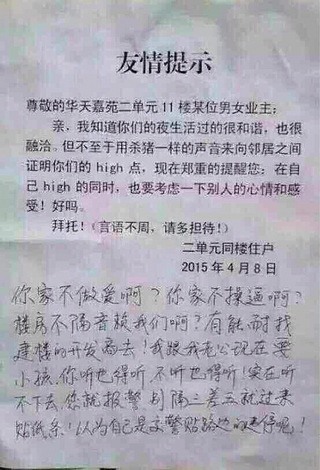 友情提示
尊敬的华天嘉苑二单元11楼某位男女业主：
亲，我知道你们的夜生活过的很和谐，也很
融洽。但不至于用杀猪一样的声音来向邻居之间
证明你们的 high 点，现在郑重的提醒您：在自
己 high 的同时，也要考虑一下别人的心情和感
受！好吗。
拜托！（言语不周，请多担待！）
二单元同楼住户
2015 年 4 月 8 日
你家不做爱啊？你家不操逼啊？
楼房不隔音赖我们啊？有能耐找
建楼的开发商去！我跟我老公现在要
小孩，你听也得听，不听也得听！实在听
不下去您就报警！别隔三差五就过来
贴纸条！以为自己是交警贴路边的违停呢！